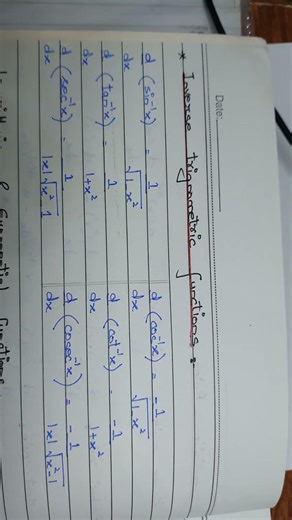 Date:
* Inverse trigonometric functions :
d/dx (sin⁻¹x) = 1/√(1-x²)    d/dx (cos⁻¹x) = -1/√(1-x²)
d/dx (tan⁻¹x) = 1/(1+x²)    d/dx (cot⁻¹x) = -1/(1+x²)
d/dx (sec⁻¹x) = 1/(|x|√(x²-1))    d/dx (cosec⁻¹x) = -1/(|x|√(x²-1))
Exponential functions